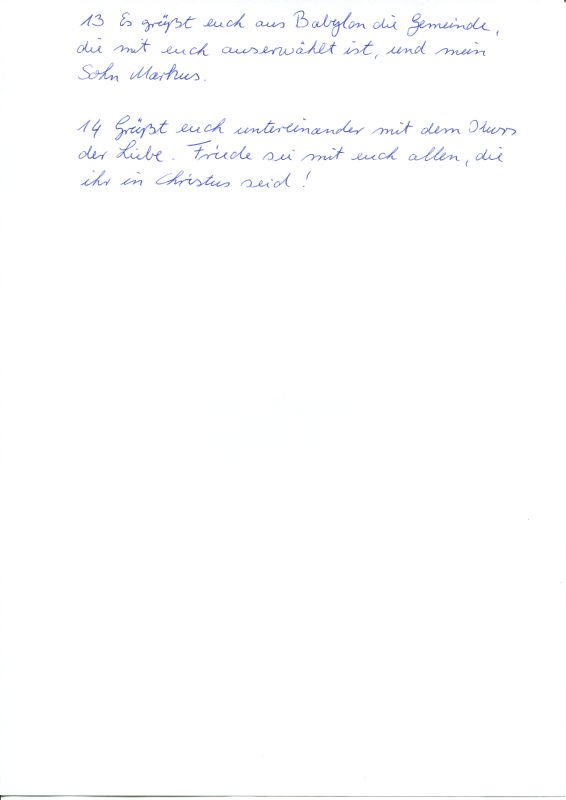 13 Es grüßt euch aus Babylon die Gemeinde,
die mit euch auserwählt ist, und mein
Sohn Markus.
14 Grüßt euch untereinander mit dem
der Liebe. Friede sei mit euch allen, die
ihr in Christus seid!